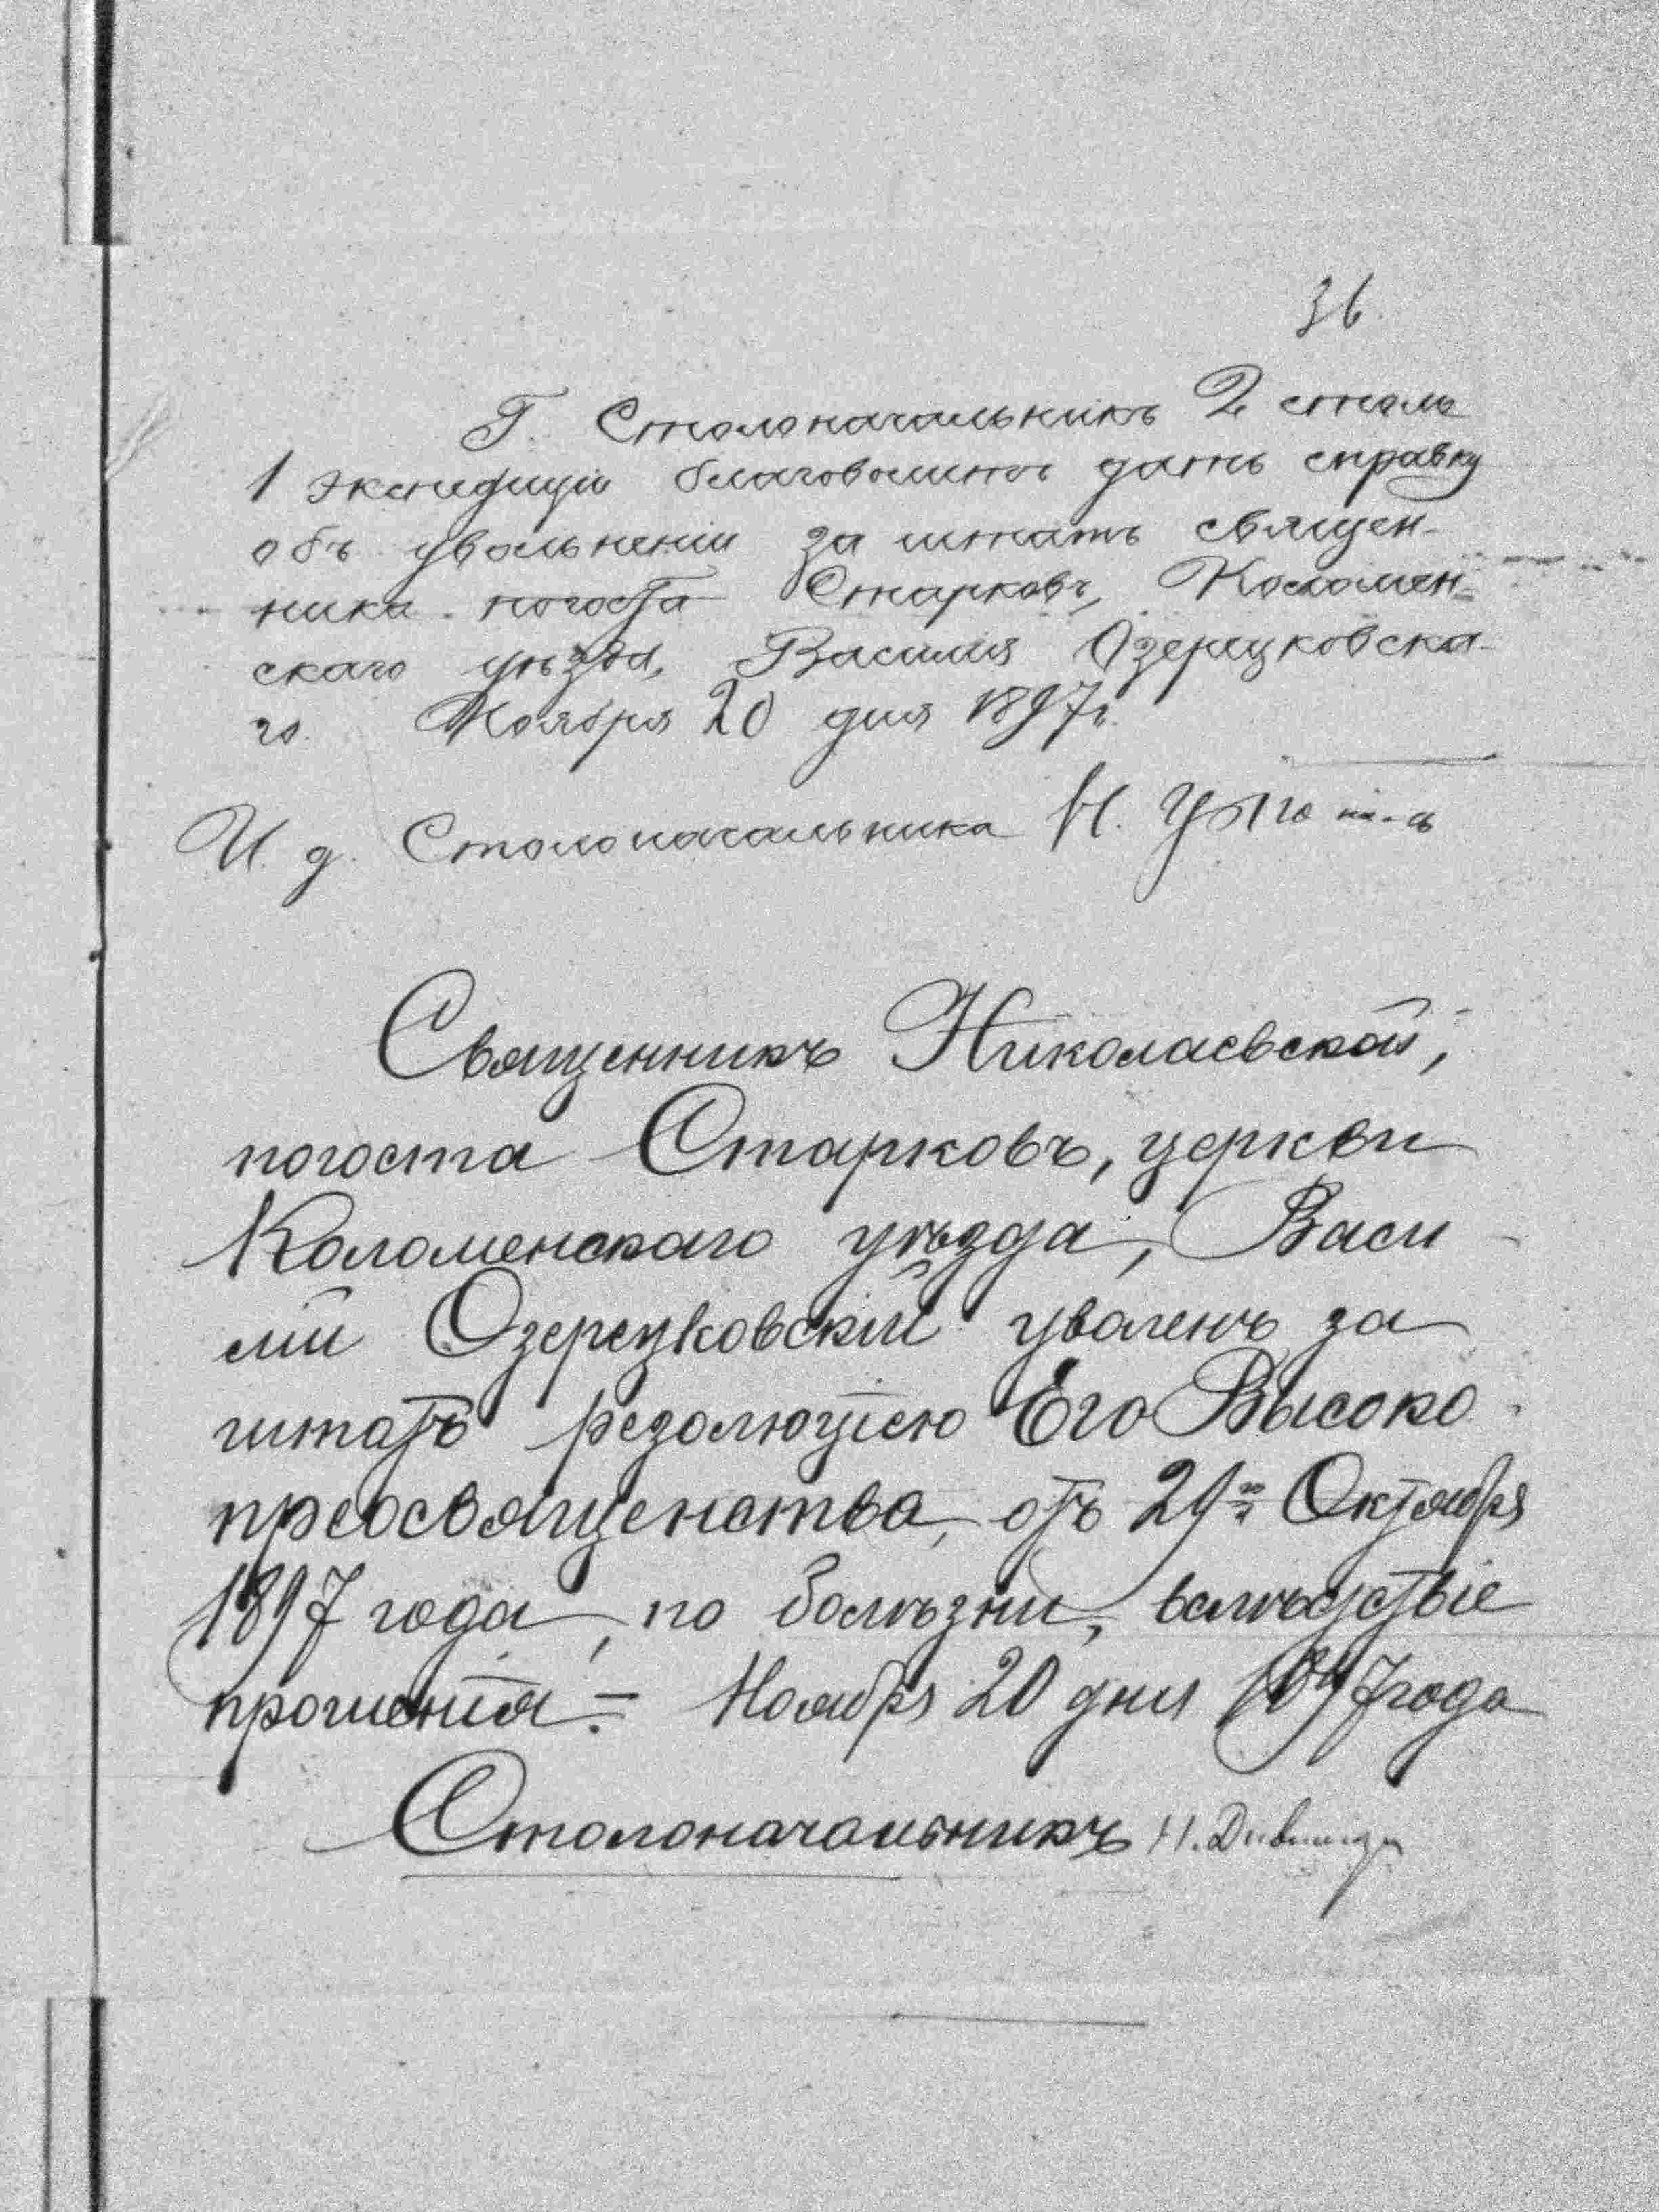 36.
Г. Столоначальникъ 2 стола
1 экспедиціи благоволитъ дать справку
объ увольненіи за штатъ священ-
ника погоста Старковъ, Коломен-
скаго уѣзда, Василія Озерецковска-
го. Ноября 20 дня 1897 г.
И. д. Столоначальника Н.
Священникъ Николаевской,
погоста Старковъ, церкви
Коломенскаго уѣзда, Васи-
лій Озерецковскій уволенъ за
штатъ резолюціею Его Высоко-
преосвященства, отъ 29го Октября
1897 года, по болѣзни, вслѣдствіе
прошенія. – Ноября 20 дня 1897 года
Столоначальникъ Н.